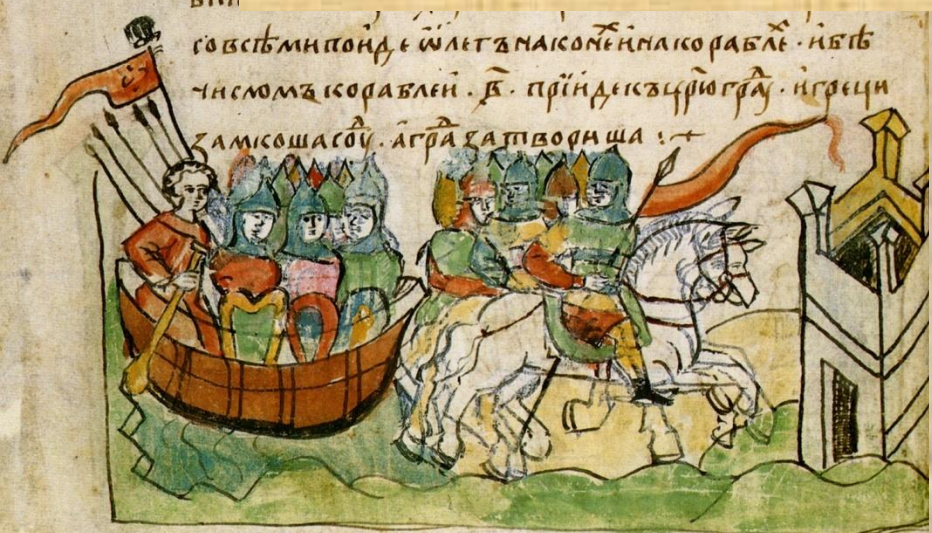 со всѣми поиде ѡлегъ на конеⷯ и на кораблеⷯ · и бѣ
числомъ кораблеи · в҃ · прїиде къ цр҃юграⷣ · и греци
замкоша соуⷣ · а граⷣ затвориша :·+